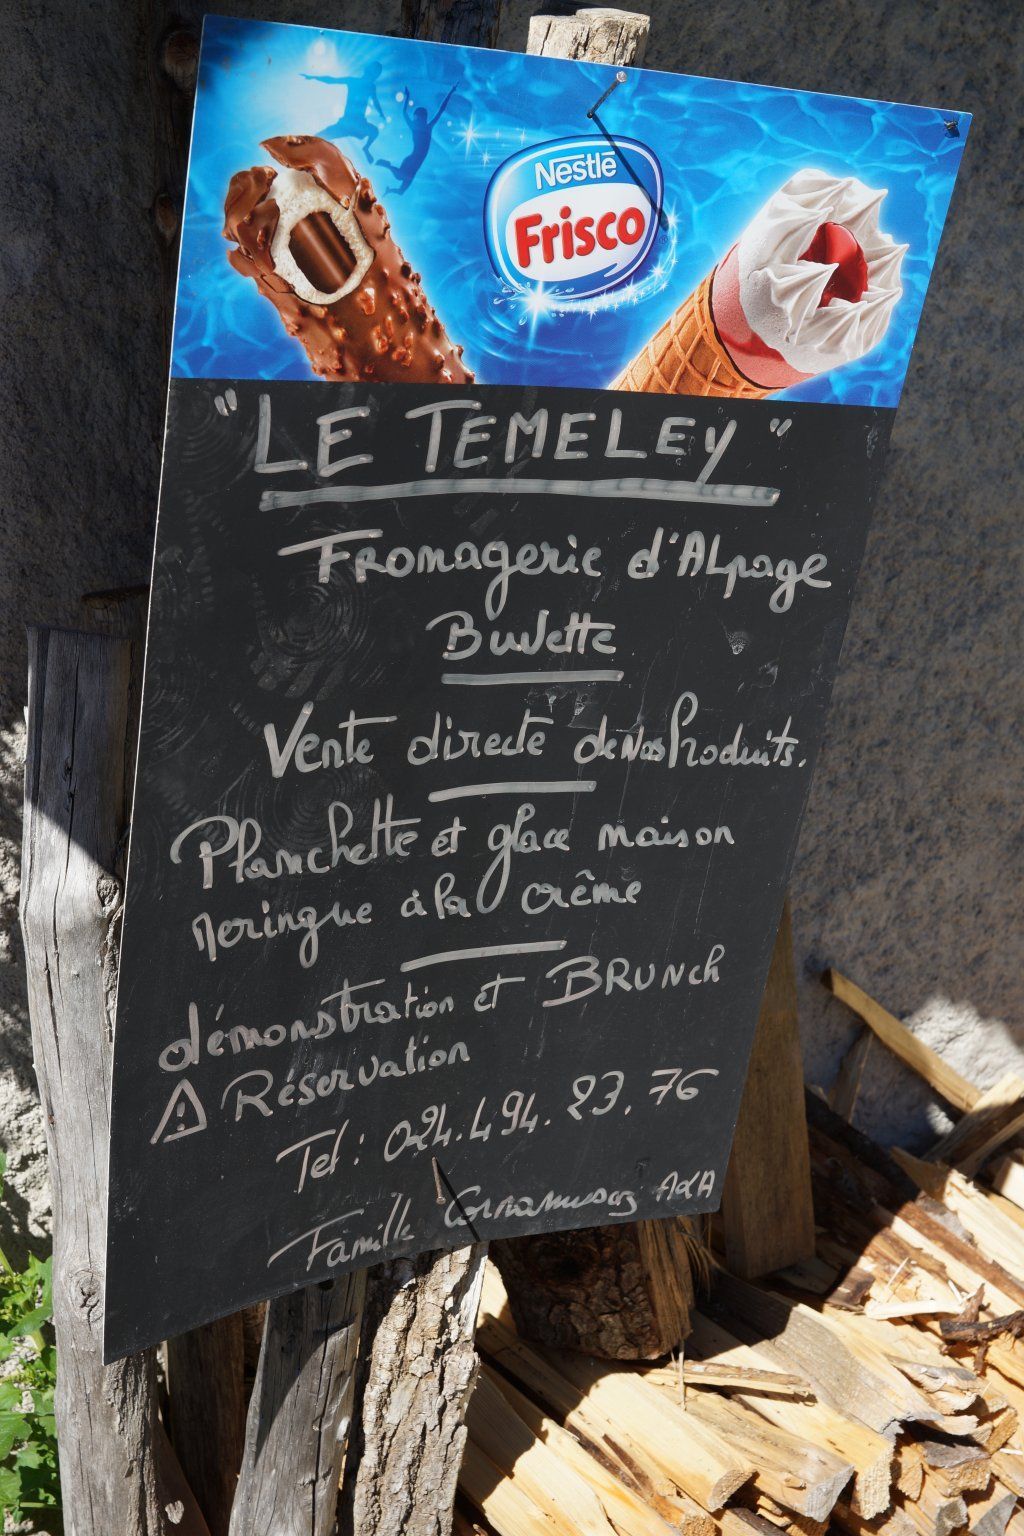 Nestlé
Frisco
"LE TEMELEY"
Fromagerie d'Alpage
Buvette
Vente directe de nos Produits.
Planchette et glace maison
Meringue à la crème
démonstration et BRUNch
⚠ Réservation
Tel: 024.494.23.76
Famille